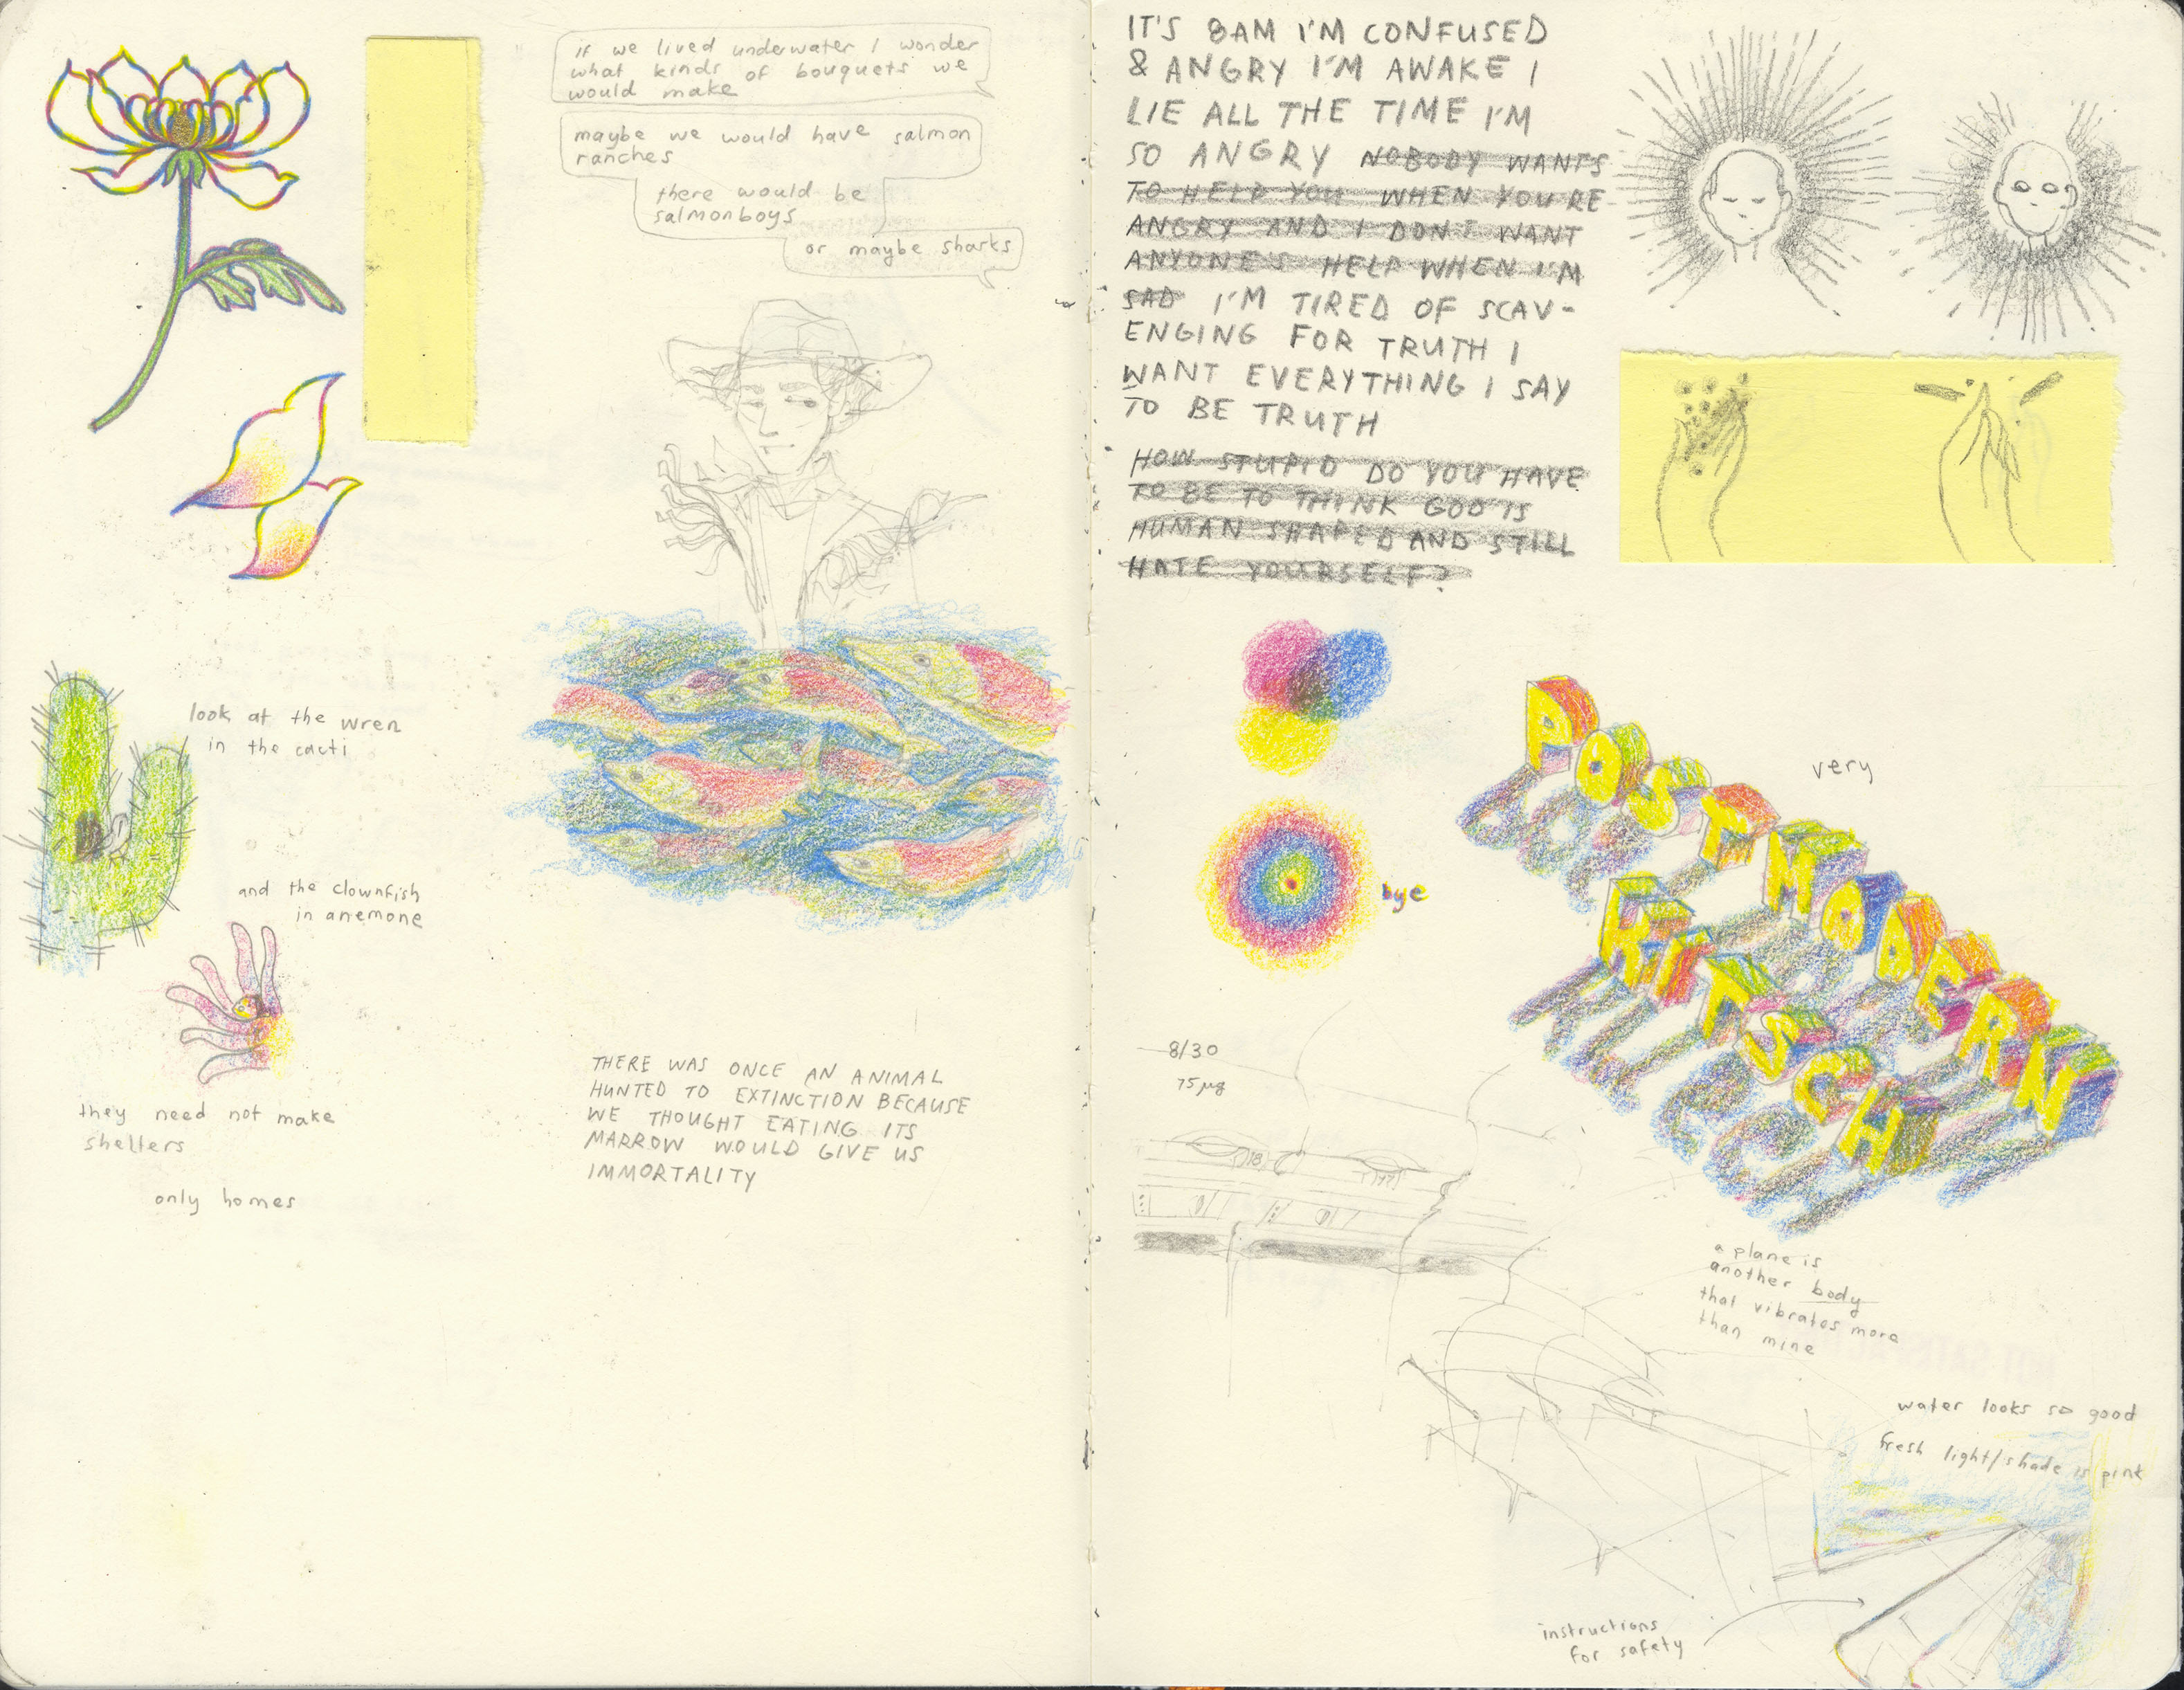 if we lived underwater I wonder
what kinds of bouquets we
would make
maybe we would have salmon
ranches
there would be
salmonboys
or maybe sharks
look at the wren
in the cacti
and the clownfish
in anemone
they need not make
shelters
only homes
THERE WAS ONCE AN ANIMAL
HUNTED TO EXTINCTION BECAUSE
WE THOUGHT EATING ITS
MARROW WOULD GIVE US
IMMORTALITY
IT'S 8AM I'M CONFUSED
& ANGRY I'M AWAKE I
LIE ALL THE TIME I'M
SO ANGRY NOBODY WANTS
TO HELP YOU WHEN YOU'RE
ANGRY AND I DON'T WANT
ANYONE'S HELP WHEN I'M
SAD I'M TIRED OF SCAV-
ENGING FOR TRUTH I
WANT EVERYTHING I SAY
TO BE TRUTH
HOW STUPID DO YOU HAVE
TO BE TO THINK GOD IS
HUMAN SHAPED AND STILL
HATE YOURSELF?
bye
very
POSTMODERN
KITSCH
8/30
75 µg
18
17
a plane is
another body
that vibrates more
than mine
water looks so good
fresh light/shade is pink
instructions
for safety